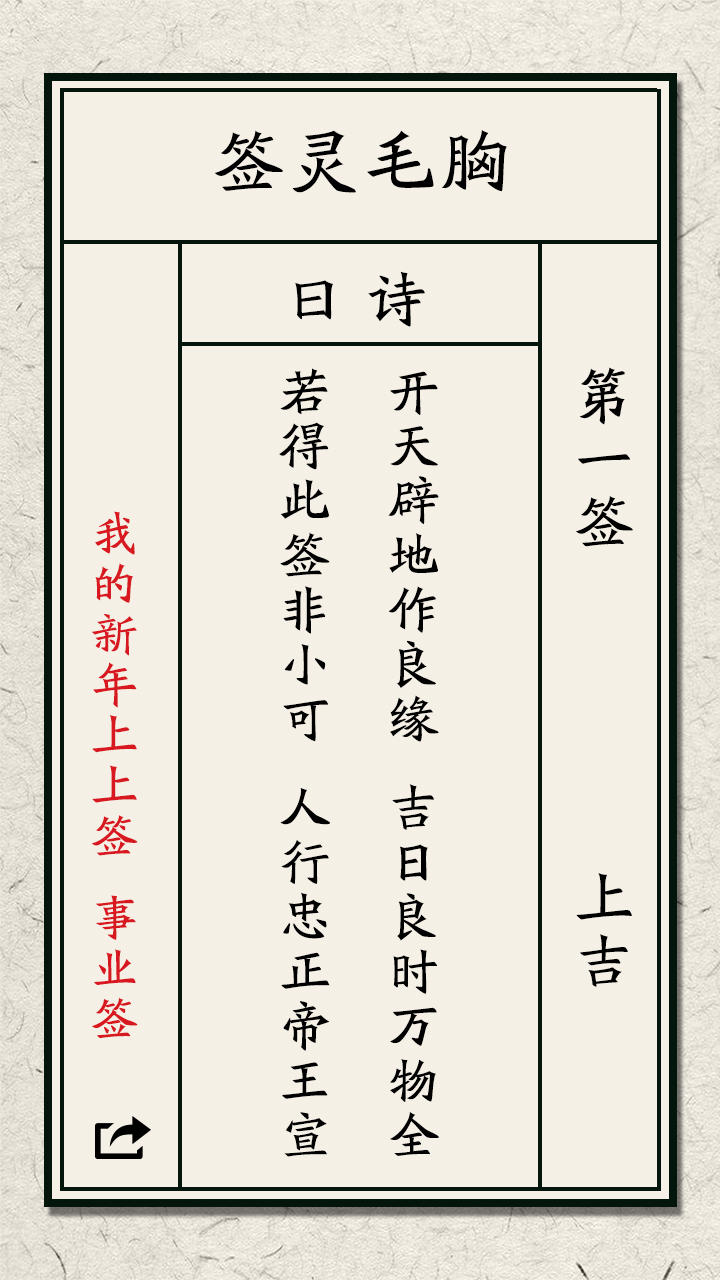 签灵毛胸
第一签 上吉
曰诗
开天辟地作良缘 吉日良时万物全
若得此签非小可 人行忠正帝王宣
我的新年上上签 事业签